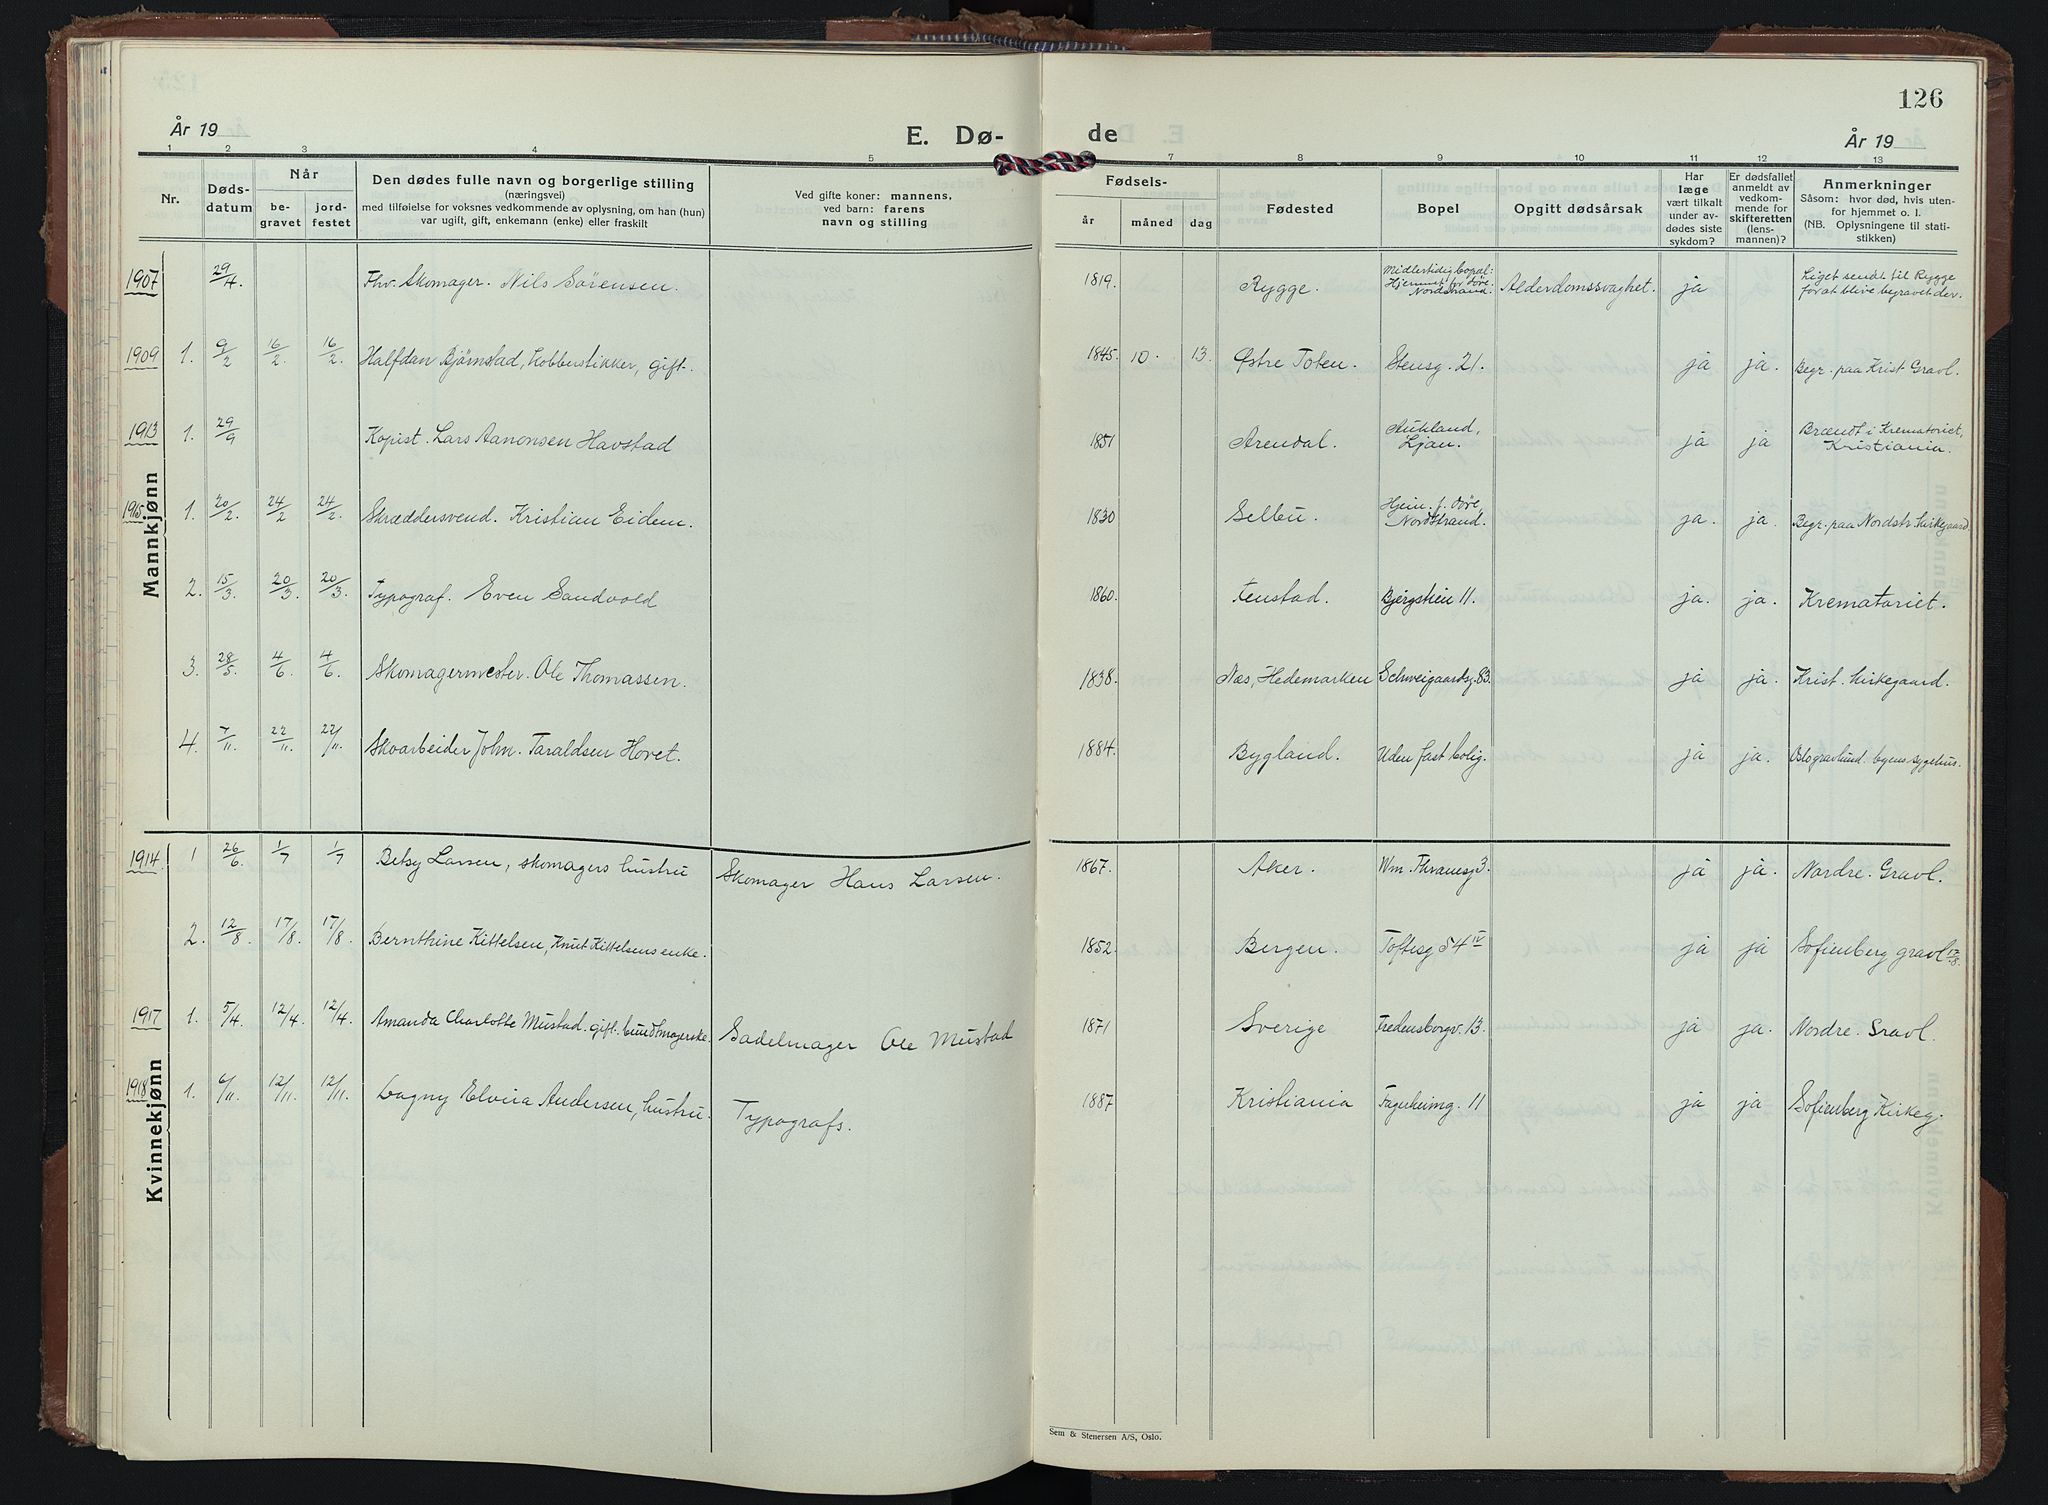 126
År 19
E. Dø-
de
År 19
1 2 3 4 5 7 8 9 10 11 12 13
Nr.
Døds-
datum
Når
be-
gravet
jord-
festet
Den dødes fulle navn og borgerlige stilling
(næringsvei)
med tilføielse for voksnes vedkommende av oplysning, om han (hun)
var ugift, gift, enkemann (enke) eller fraskilt
Ved gifte koner: mannens,
ved barn: farens
navn og stilling
Fødsels-
år måned dag
Fødested
Bopel
Opgitt dødsårsak
Har
læge
vært tilkalt
under av-
dødes siste
sykdom?
Er dødsfallet
anmeldt av
vedkom-
mende for
skifteretten
(lens-
mannen)?
Anmerkninger
Såsom: hvor død, hvis uten-
for hjemmet o. l.
(NB. Oplysningene til stati-
stikken)
Mannkjønn
1907 29/4. Fhv. Skomager. Nils Sørensen. 1819. Rygge. Midlertidig bopæl: Hjemmet for Døve Nordstrand. Alderdomssvaghet. ja Liget sendt til Rygge for at blive begravet der.
1909 1. 9/2 16/2. 16/2. Halfdan Bjørnstad, kobberstikker, gift. 1845. 10. 13. Østre Toten. Stensg. 21. ja ja. Begr. paa Krist Gravl.
1913 1. 29/9 Kopist. Lars Aanonsen Havstad 1851 Arendal. Aukland, Ljan. ja ja Brændt i Krematoriet, Kristiania.
1915 1. 20/2. 24/2 24/2. Skræddersvend. Kristian Eidem. 1830 Selbu. Hjem. f. døve, Nordstrand. ja. ja. Begr. paa Nordstr. kirkegaard
2. 15/3. 20/3. 20/3. Typograf. Even Sandvold 1860. Fenstad. Bjergstien 11. ja. ja. Krematoriet.
3. 28/5. 4/6. 4/6. Skomagermester. Ole Thomassen. 1838. Næs, Hedemarken Schweigaardsg. 83. ja ja. Krist. kirkegaard.
4. 7/11. 22/11. 22/11. Skoarbeider John. Taraldsen Hovet. 1884. Bygland. Uden fast bolig. ja ja. Oslo gravlund. byens sygehus.
Kvinnekjønn
1914 1 26/6. 1/7 1/7 Betsy Larsen, skomagers hustru Skomager Hans Larsen. 1867. Aker. Wm. Thranesg 3. ja ja. Nordre. Gravl.
2. 12/8. 17/8. 17/8. Bernthine Kittelsen, Knut Kittelsens enke. 1852. Bergen. Toftesg 54 IV ja ja Sofienberg gravl 17/8.
1917 1. 5/4. 12/4. 12/4. Amanda Charlotte Mustad. gift. bundtmagerske. Sadelmager Ole Mustad 1871 Sverige Fredensborgv. 13. ja ja. Nordre. Gravl.
1918 1. 6/11. 12/11. 12/11. Dagny Elvira Andersen, hustru. Typografs. 1887 Kristiania Fagerheimg. 11 ja ja Sofienberg Kirkeg.
Sem & Stenersen A/S, Oslo.